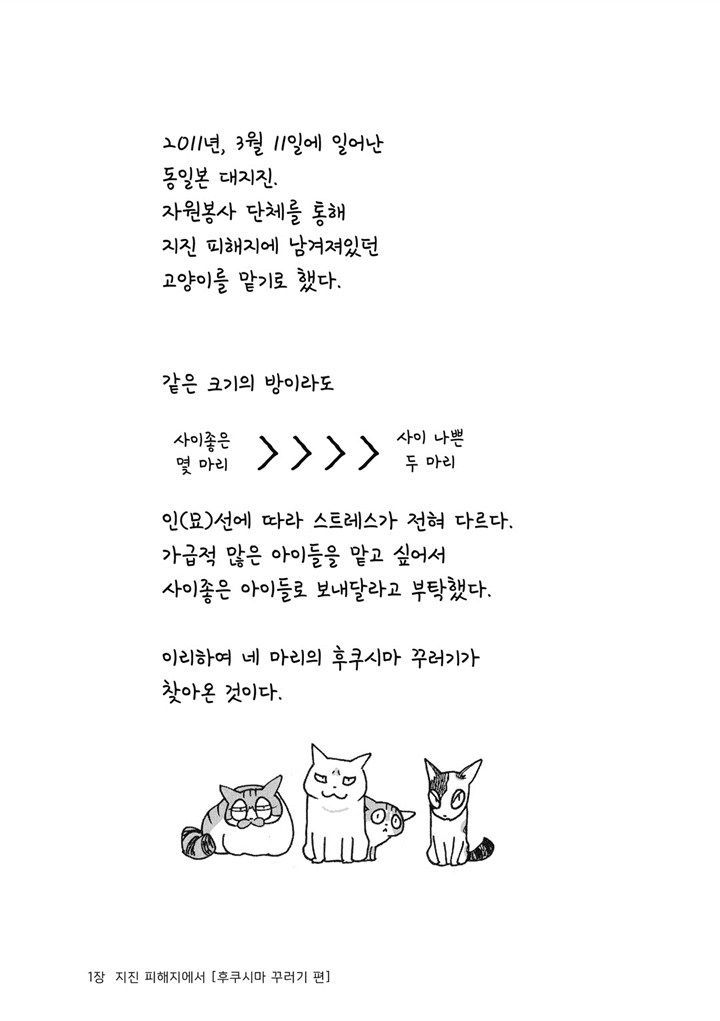 2011년, 3월 11일에 일어난
동일본 대지진.
자원봉사 단체를 통해
지진 피해지에 남겨져있던
고양이를 맡기로 했다.
같은 크기의 방이라도
사이좋은
몇 마리
>>>>
사이 나쁜
두 마리
인(묘)선에 따라 스트레스가 전혀 다르다.
가급적 많은 아이들을 맡고 싶어서
사이좋은 아이들로 보내달라고 부탁했다.
이리하여 네 마리의 후쿠시마 꾸러기가
찾아온 것이다.
1장 지진 피해지에서 [후쿠시마 꾸러기 편]